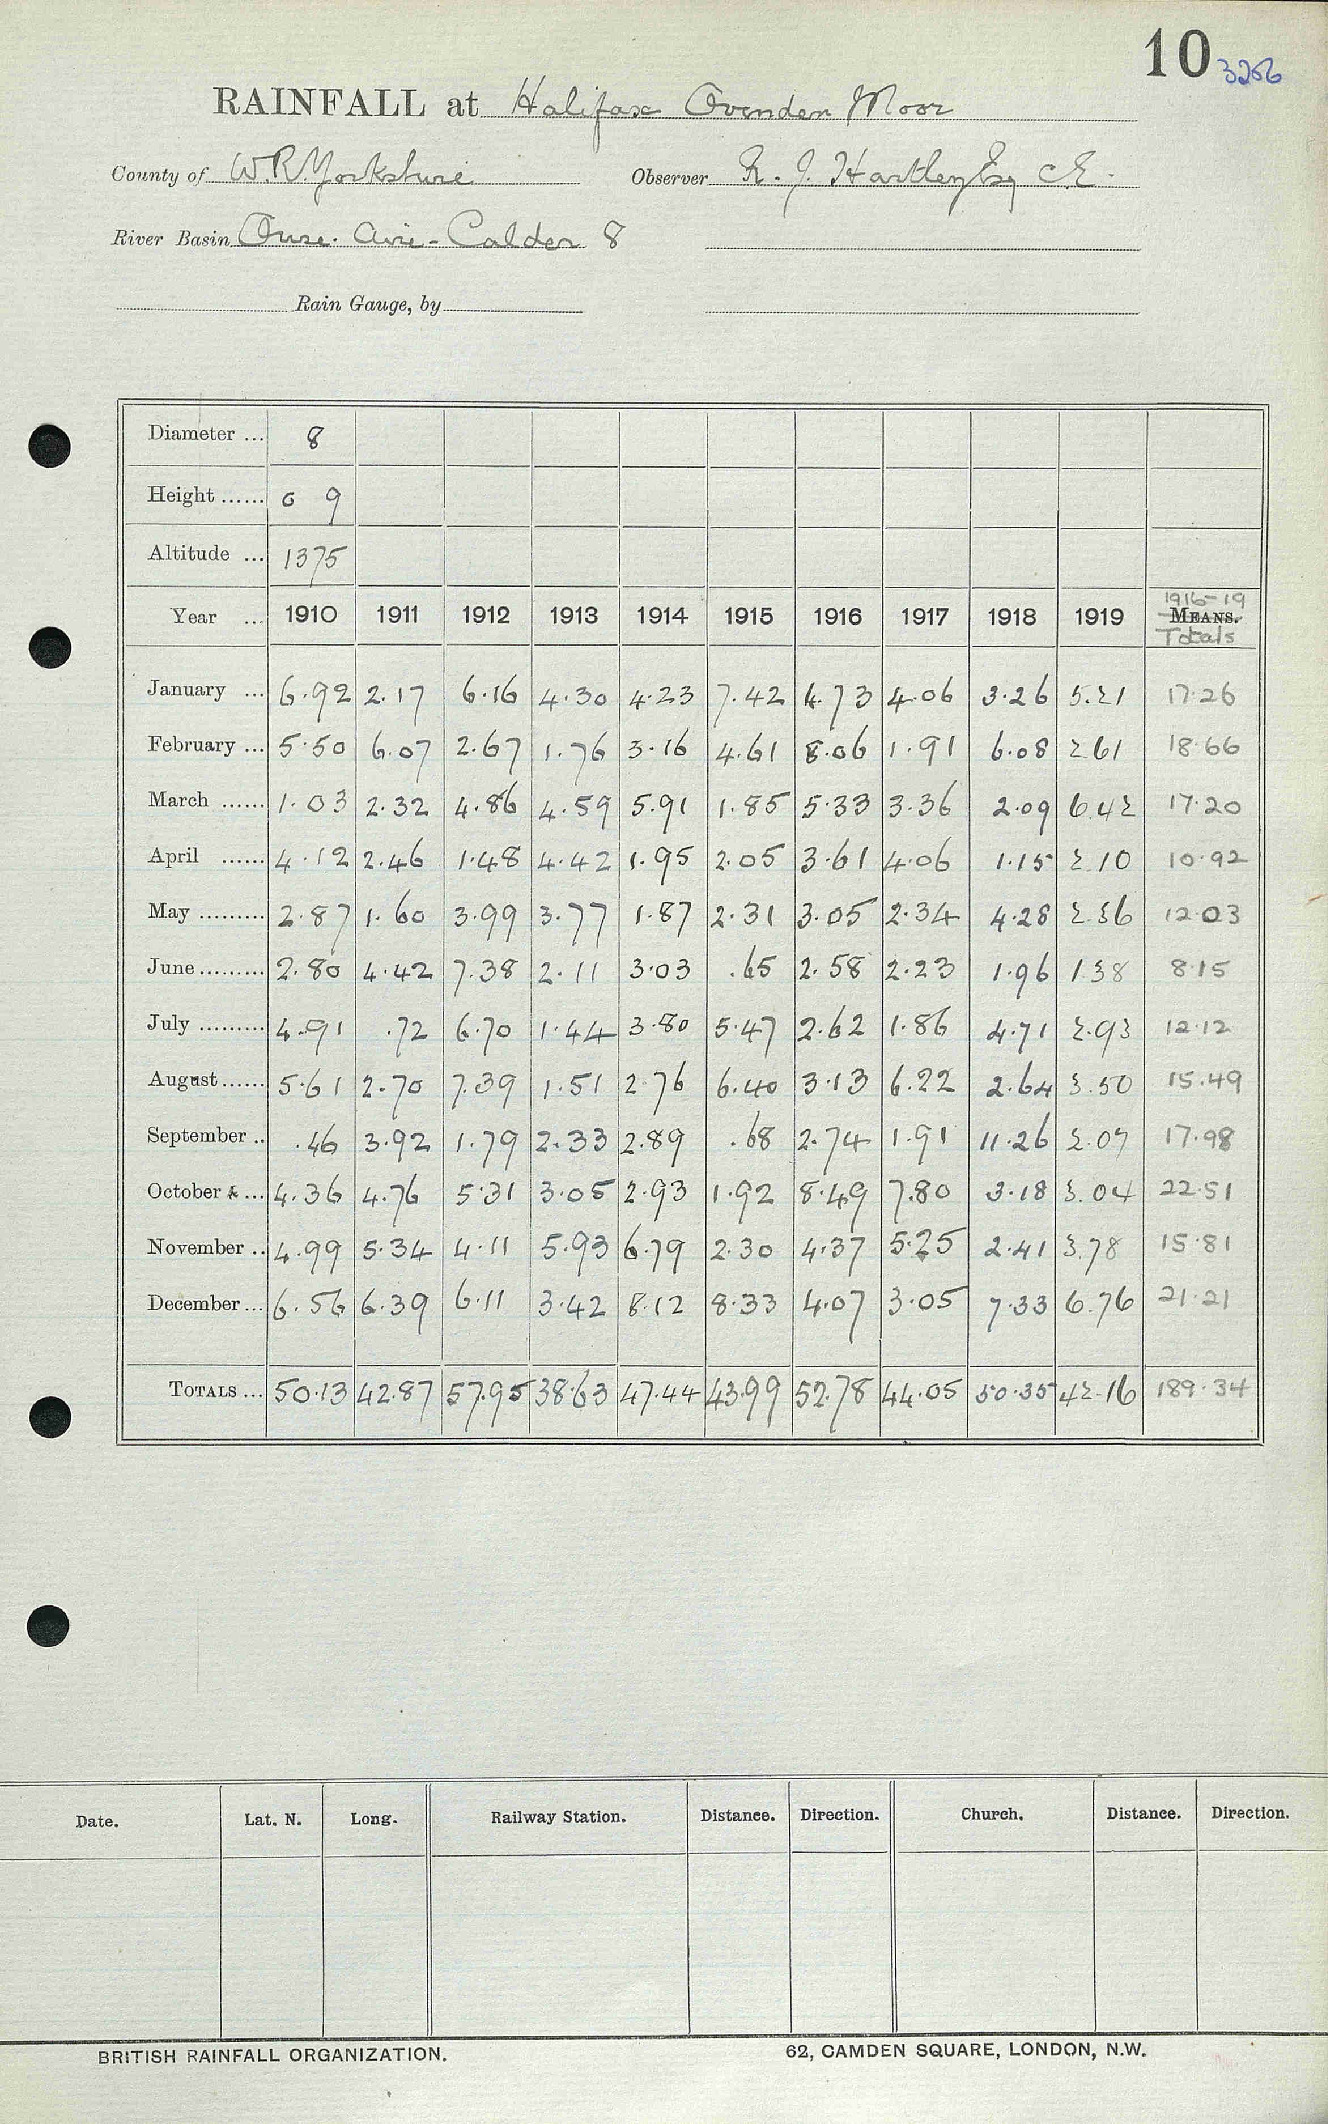 10 3256
RAINFALL at Halifax Ovenden Moor
County of W.R. Yorkshire Observer R. J. Hartley Esq C.E.
River Basin Ouse. Aire - Calder 8
Rain Gauge, by
Diameter ... 8
Height ...... 0 9
Altitude ... 1375
1916-19
Year ... 1910 1911 1912 1913 1914 1915 1916 1917 1918 1919 MEANS.
Totals
January ... 6.92 2.17 6.16 4.30 4.23 7.42 4.73 4.06 3.26 5.21 17.26
February ... 5.50 6.07 2.67 1.76 3.16 4.61 8.06 1.91 6.08 2.61 18.66
March ...... 1.03 2.32 4.86 4.59 5.91 1.85 5.33 3.36 2.09 6.42 17.20
April ...... 4.12 2.46 1.48 4.42 1.95 2.05 3.61 4.06 1.15 2.10 10.92
May ......... 2.87 1.60 3.99 3.77 1.87 2.31 3.05 2.34 4.28 2.36 12.03
June ......... 2.80 4.42 7.38 2.11 3.03 .65 2.58 2.23 1.96 1.38 8.15
July ......... 4.91 .72 6.70 1.44 3.80 5.47 2.62 1.86 4.71 2.93 12.12
August ...... 5.61 2.70 7.39 1.51 2.76 6.40 3.13 6.22 2.64 3.50 15.49
September .. .46 3.92 1.79 2.33 2.89 .68 2.74 1.91 11.26 2.07 17.98
October ... 4.36 4.76 5.31 3.05 2.93 1.92 8.49 7.80 3.18 3.04 22.51
November .. 4.99 5.34 4.11 5.93 6.79 2.30 4.37 5.25 2.41 3.78 15.81
December ... 6.56 6.39 6.11 3.42 8.12 8.33 4.07 3.05 7.33 6.76 21.21
TOTALS ... 50.13 42.87 57.95 38.63 47.44 43.99 52.78 44.05 50.35 42.16 189.34
Date. Lat. N. Long. Railway Station. Distance. Direction. Church. Distance. Direction.
BRITISH RAINFALL ORGANIZATION. 62, CAMDEN SQUARE, LONDON, N.W.